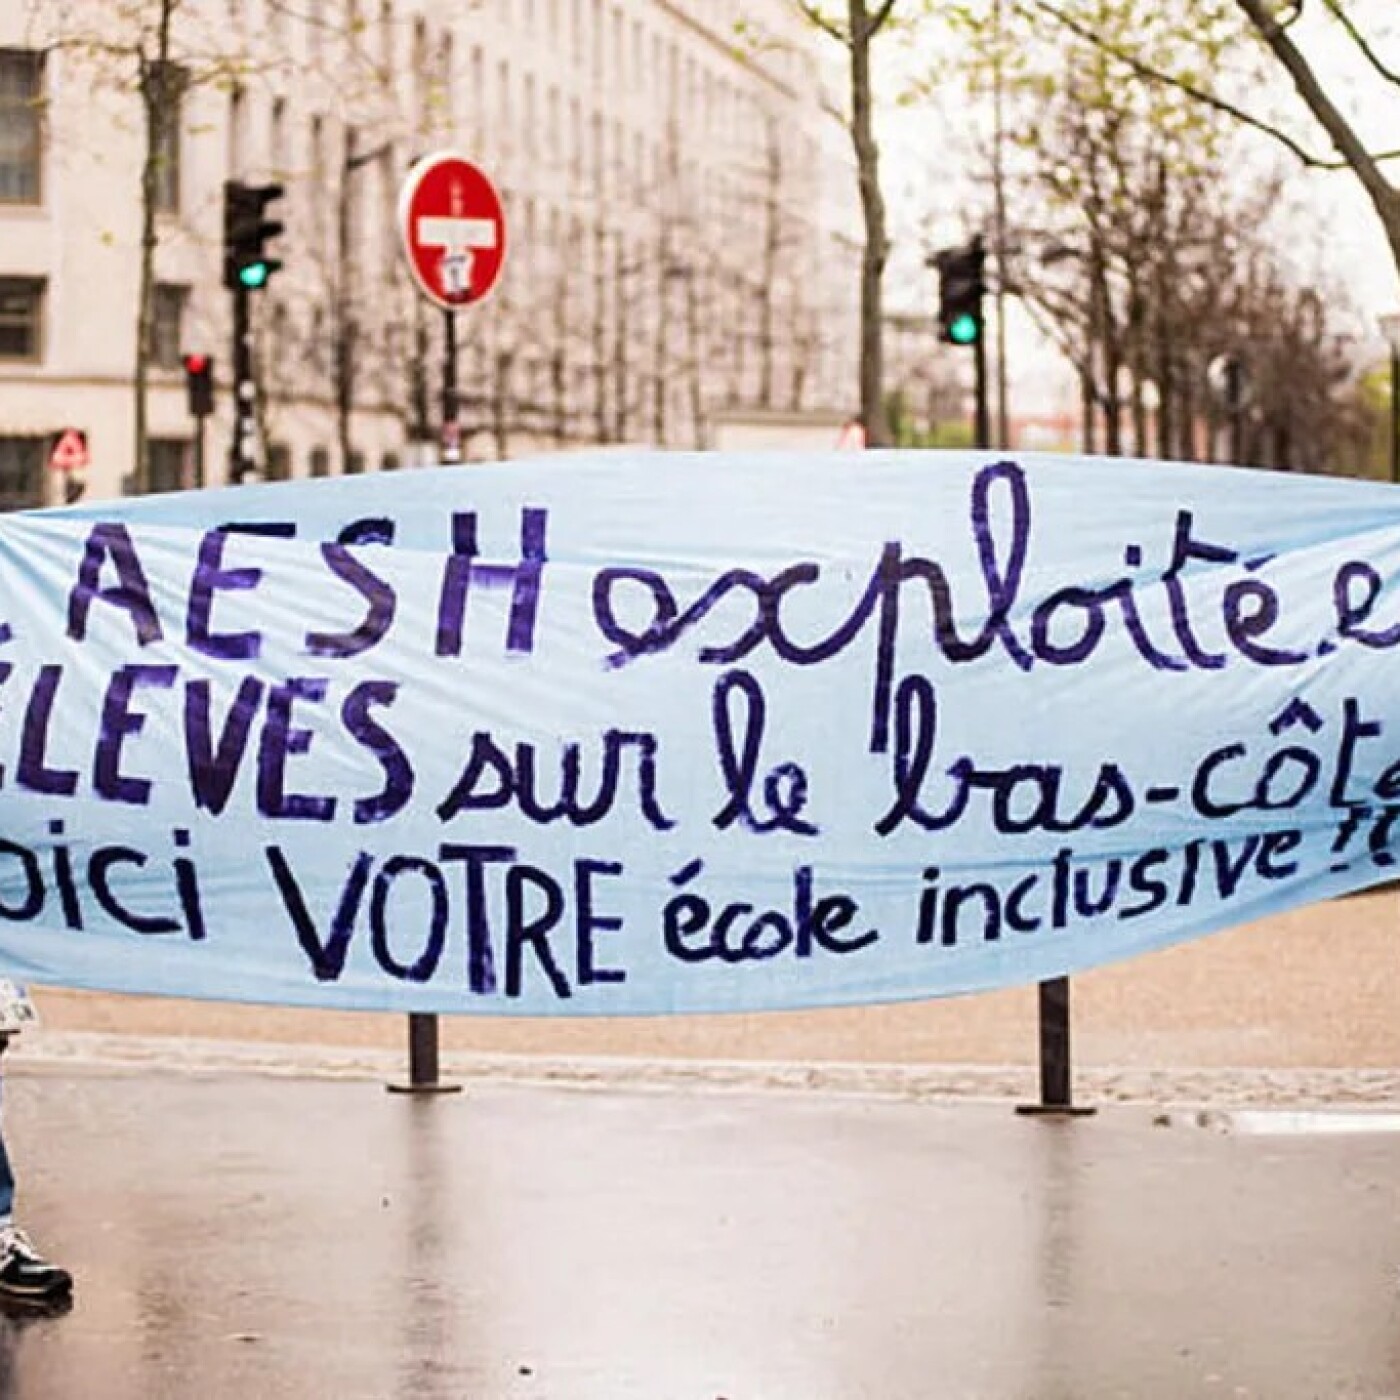 AESH exploité.e
ÉLEVES sur le bas-côté
voici VOTRE école inclusive !!